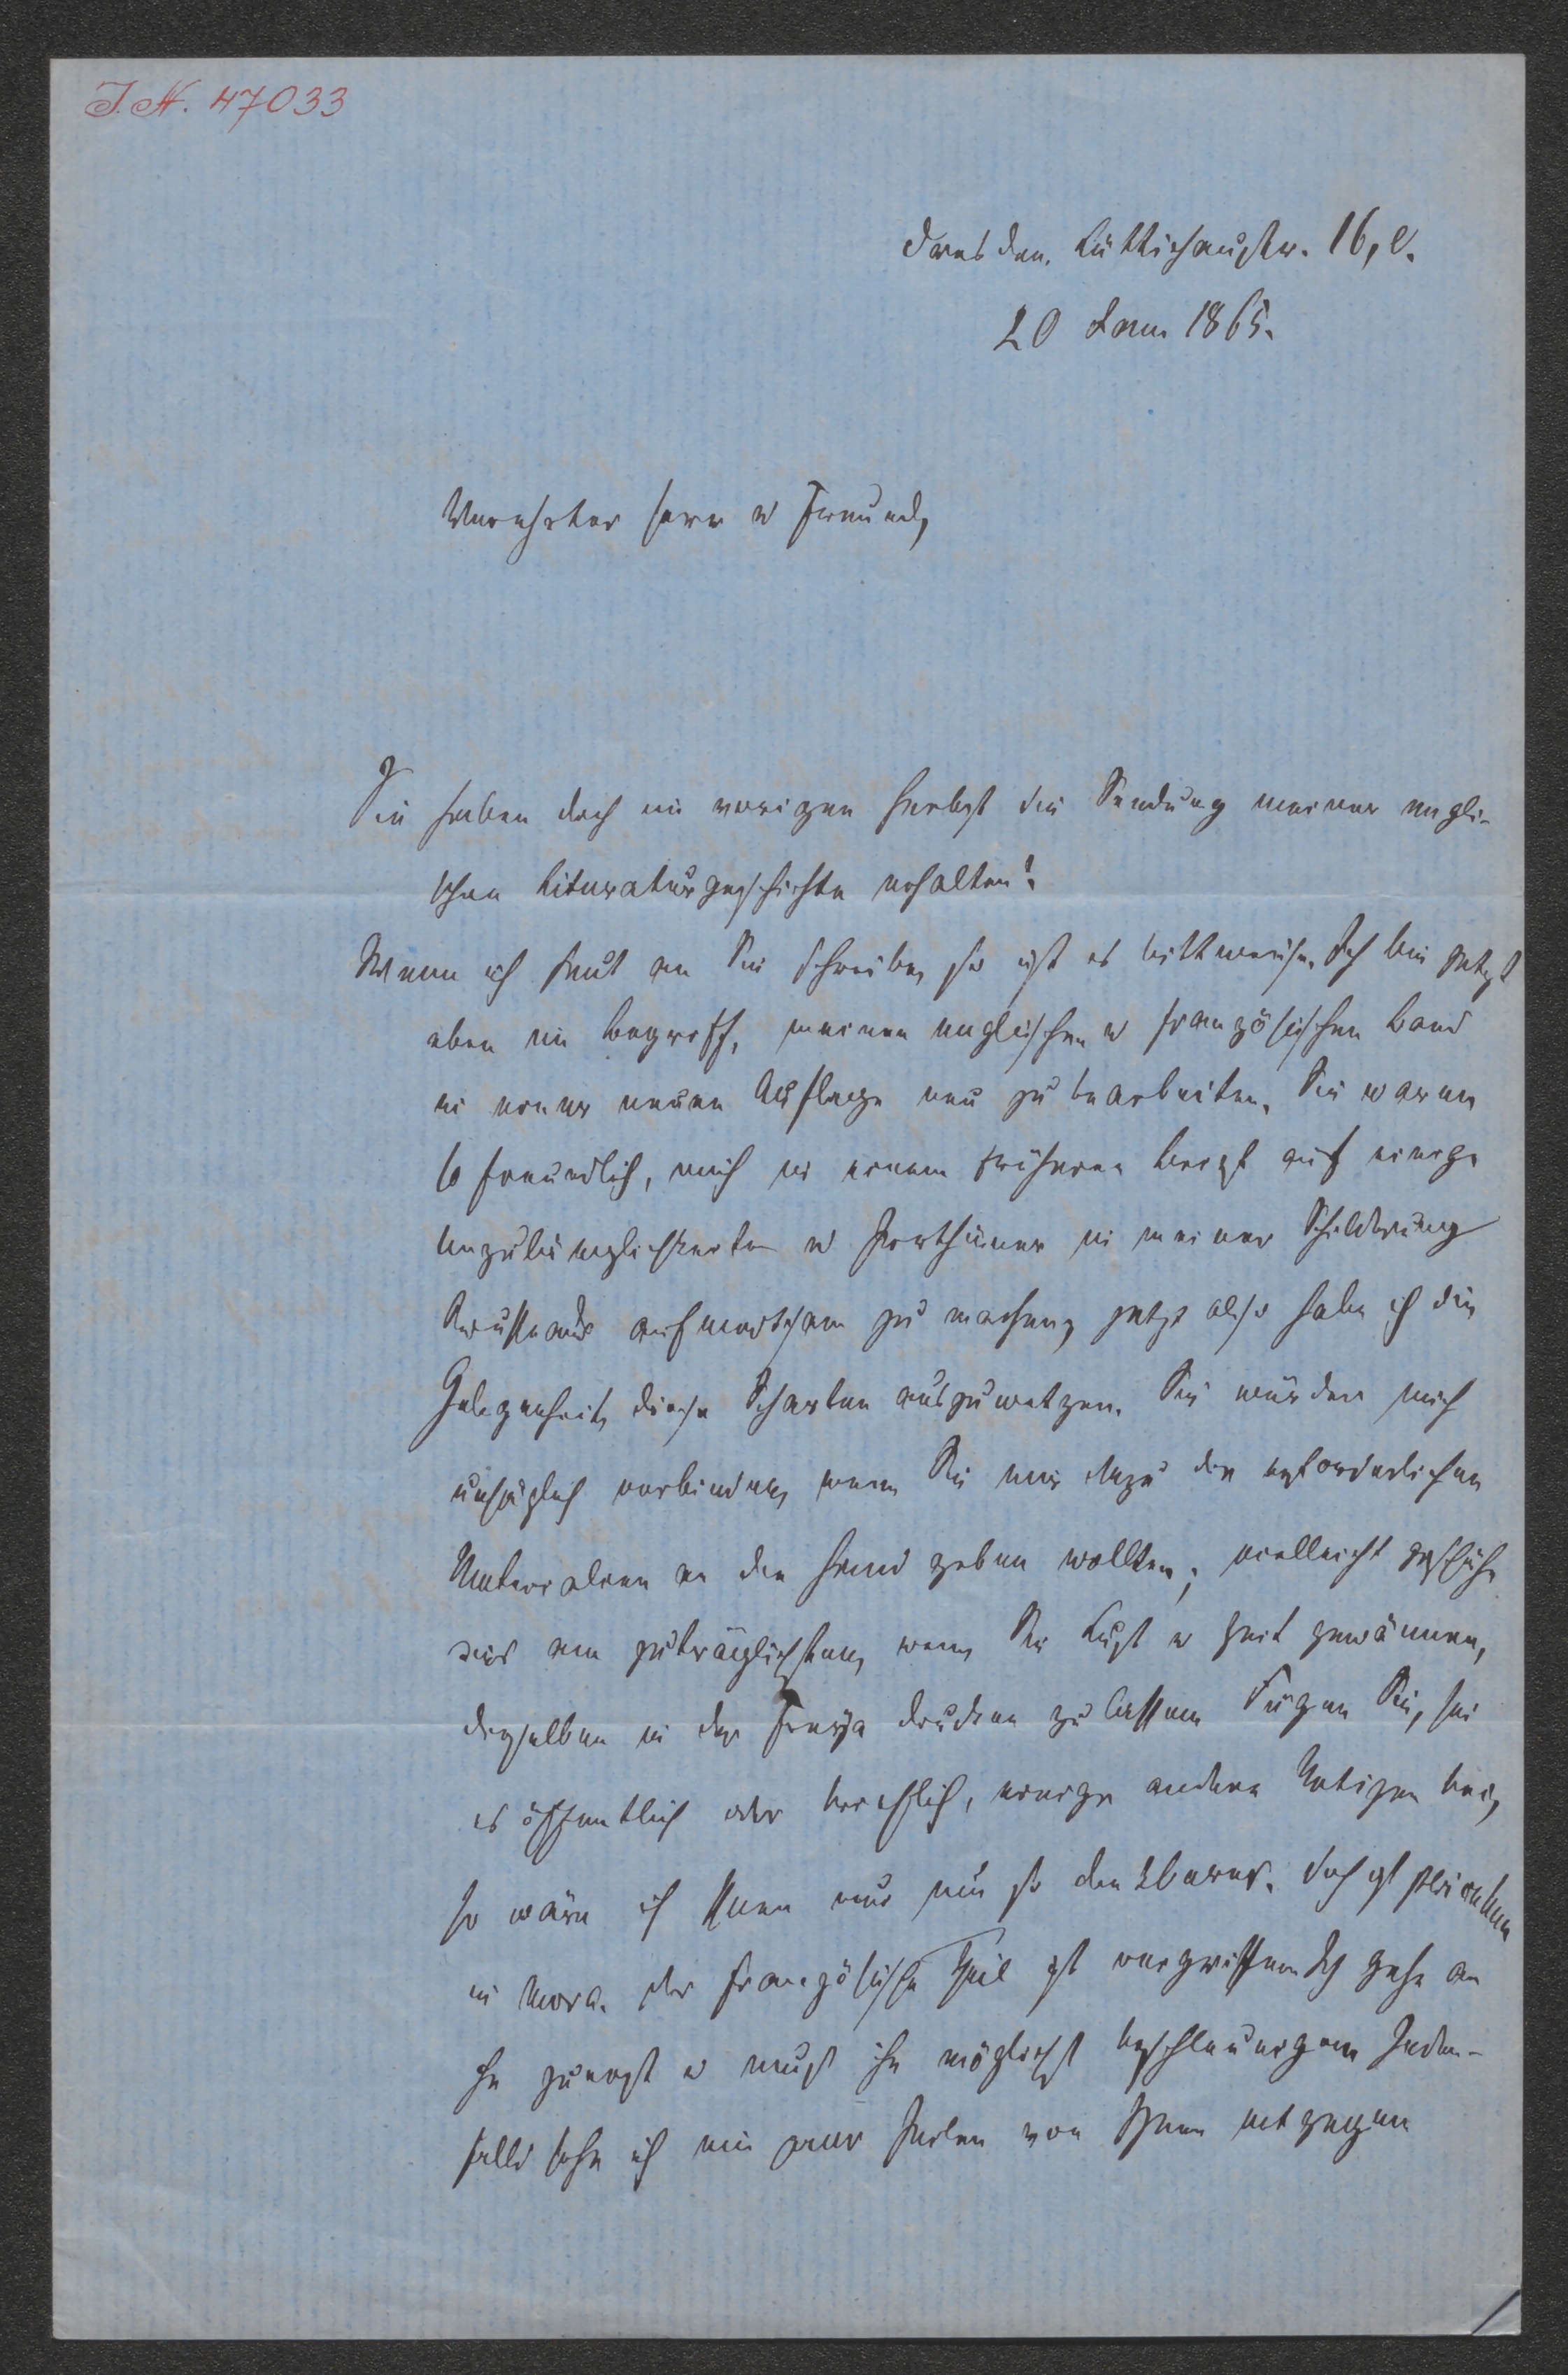 I.N. 47033
Dresden. Lüttichaustr. 16, e.
20 Jan. 1865.
Verehrter Herr u Freund,
Sie haben doch im vorigen Herbst die Sendung meiner engli-
schen Literaturgeschichte erhalten?
Wenn ich heut an Sie schreibe, so ist es bittweise. Ich bin jetzt
eben im Begriff, meinen englischen u französischen Band
in einer neuen Auflage neu zu bearbeiten. Sie waren
so freundlich, mich in einem früheren Brief auf einige
Unzulänglichkeiten u Irrthümer in meiner Schilderung
aufmerksam zu machen; jetzt also habe ich die
Gelegenheit, diese Scharten auszuwetzen. Sie würden mich
unsäglich verbinden, wenn Sie mir dazu die erforderlichen
Materialien an die Hand geben wollten; vielleicht geschähe
dies am zuträglichsten, wenn Sie Lust u Zeit gewännen,
dieselben in der drucken zu lassen. Fügen Sie, sei
es öffentlich oder brieflich, einige andere Notizen bei,
so wäre ich Ihnen nur um so dankbarer. Doch ist
in Mora. Der französische Theil ist vergriffen. Ich gehe an
ihn zuerst u muß ihn möglichst beschleunigen. Jeden-
falls sehe ich ein paar Zeilen von Ihnen entgegen